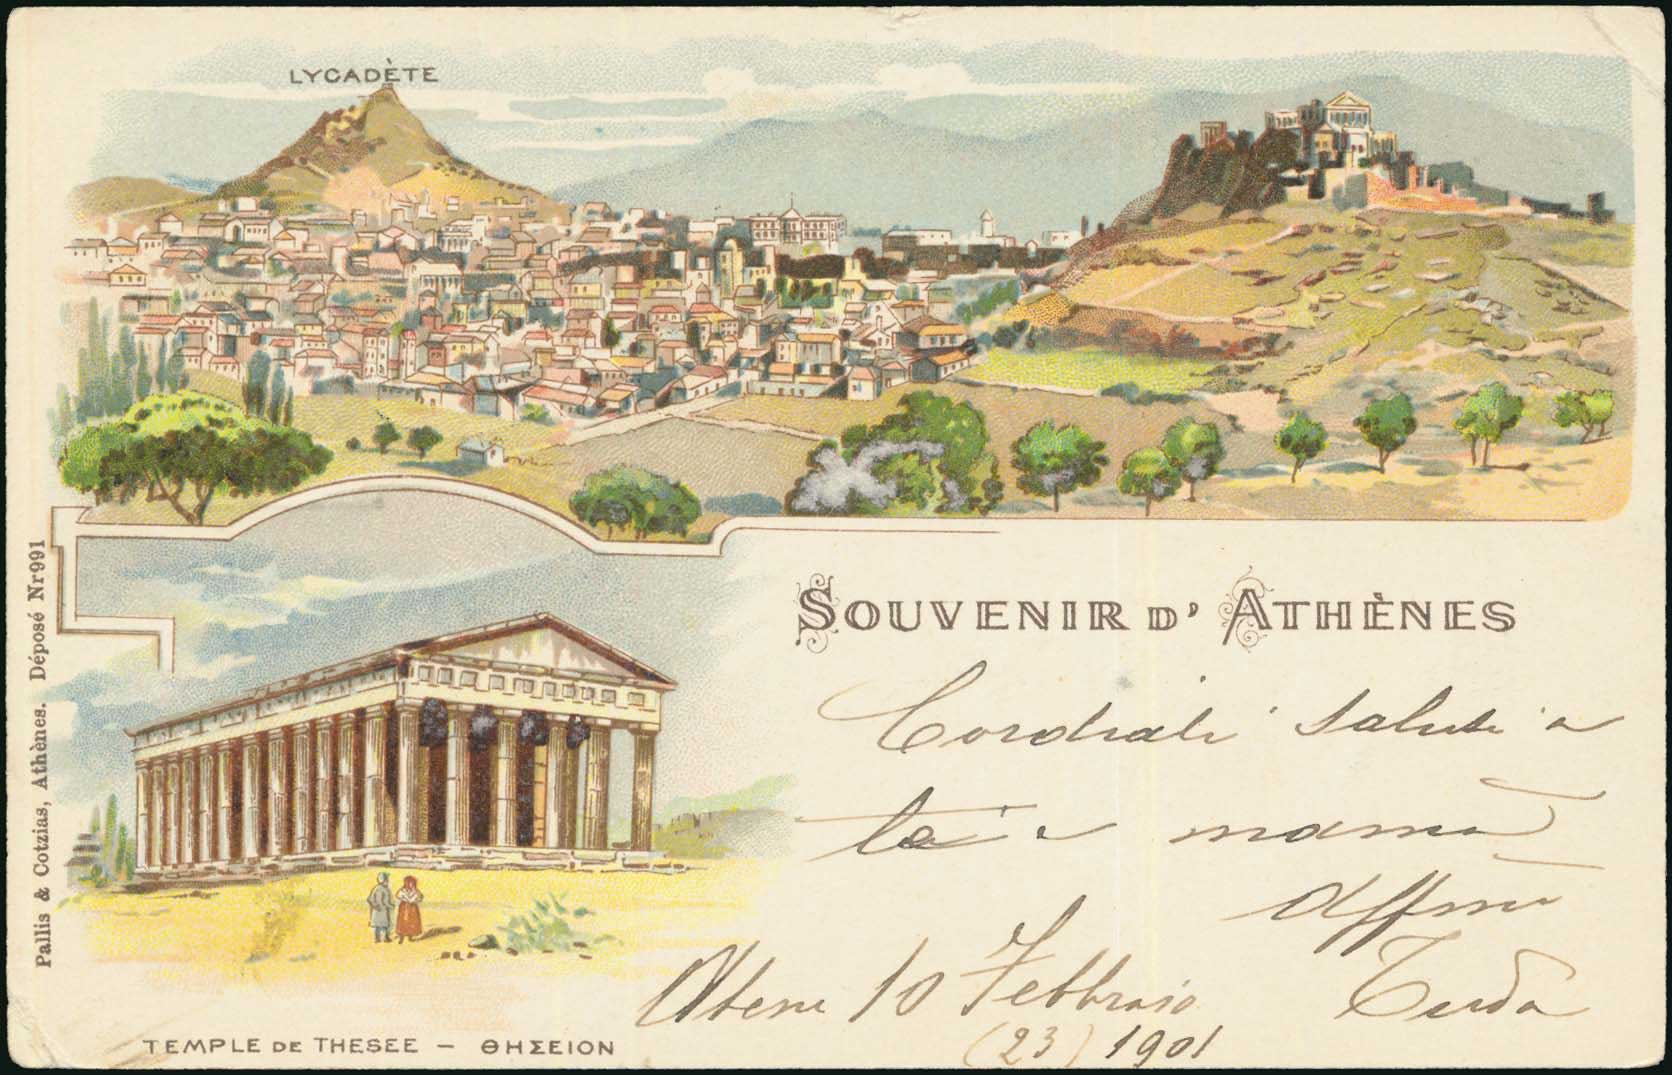 LYCADÈTE
SOUVENIR D' ATHÈNES
Cordiali saluti a
te e mamma
affmo
Atene 10 Febbraio
(23) 1901
TEMPLE DE THESEE – ΘΗΣΕΙΟΝ
Pallis & Cotzias, Athènes. Déposé Nr 991